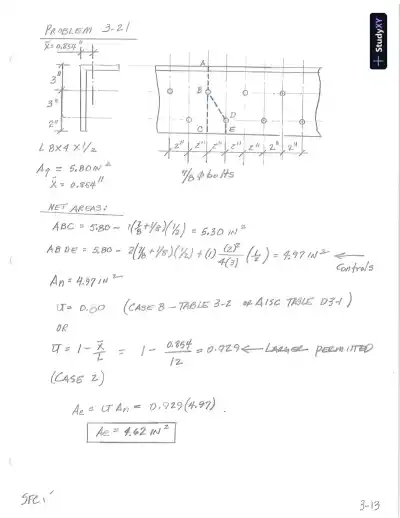 PROBLEM 3-21
x̄=0.854"
3"
3"
2"
A
B
D
C
E
2" 2" 2" 2" 2" 2"
7/8 φ bolts
L 8x4x1/2
Ag = 5.80 in²
x̄ = 0.854"
NET AREAS:
ABC = 5.80 - 1(7/8+1/8)(1/2) = 5.30 IN²
ABDE = 5.80 - 2(7/8+1/8)(1/2)+(1) (2)²/4(3) (1/2) = 4.97 IN² ← Controls
An = 4.97 IN²
U = 0.80 (CASE 8 - TABLE 3-2 or AISC TABLE D3-1)
OR
U = 1 - x̄/L = 1 - 0.854/12 = 0.929 ← LARGER PERMITTED
(CASE 2)
Ae = U An = 0.929(4.97)
Ae = 4.62 IN²
3-13
StudyXY